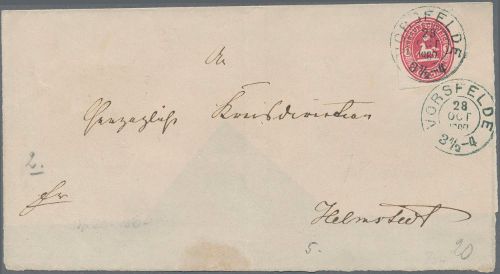 VORSFELDE
28
3½-4
VORSFELDE
28
OCT
3½-4
An
Herzogliche Kreisdirection
2.
Helmstedt
5.
20